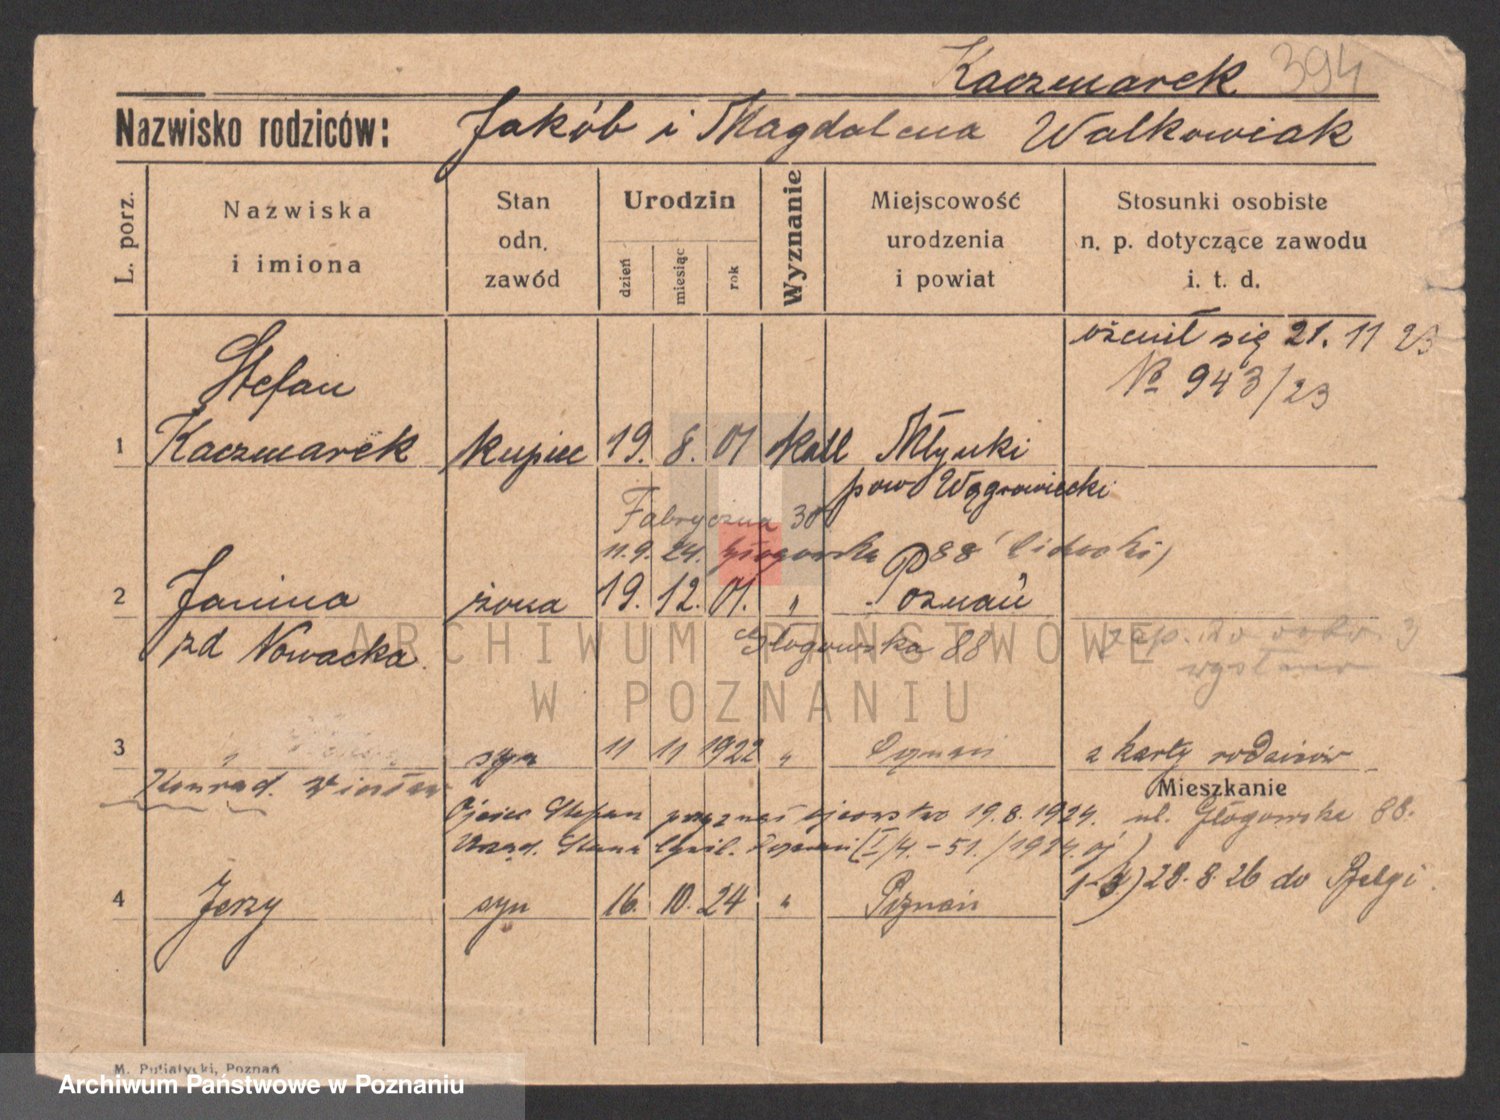 Kaczmarek 394
Nazwisko rodziców: Jakób i Magdalena Walkowiak
L. porz.
Nazwiska
i imiona
Stan
odn.
zawód
Urodzin
dzień
miesiąc
rok
Wyznanie
Miejscowość
urodzenia
i powiat
Stosunki osobiste
n. p. dotyczące zawodu
i. t. d.
ożenił się 21. 11 23
No 943/23
Stefan
1 Kaczmarek kupiec 19. 8. 01 kat Młynki
pow Wągrowiecki
Fabryczna 30
11.9. 24. Głogowska 88
2 Janina żona 19. 12. 01. " Poznań
zd Nowacka.
Głogowska 88
wysłano
ARCHIWUM PAŃSTWOWE
W POZNANIU
3 " syn 11 11 1922 " Poznań z karty rodziców
Konrad. Wiesław
Mieszkanie
Ojciec Stefan przyznał ojcostwo 19.8.1924. ul. Głogowska 88.
Urząd. Stanu Cywil. Poznań (I/4. - 51./1924.
1-4) 28.8.26 do Belgi.
4 Jerzy syn 16. 10. 24 " Poznań
M. Putiatycki, Poznań
Archiwum Państwowe w Poznaniu